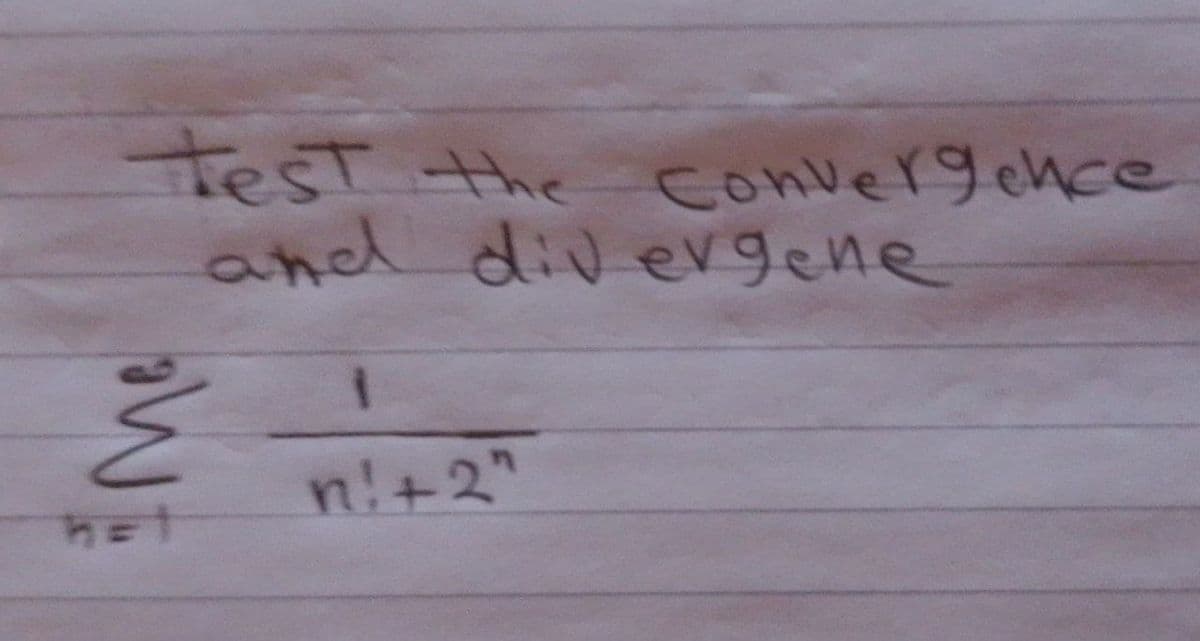 test the convergence
and divergene
∞
Σ 1
n!+2ⁿ
n=1